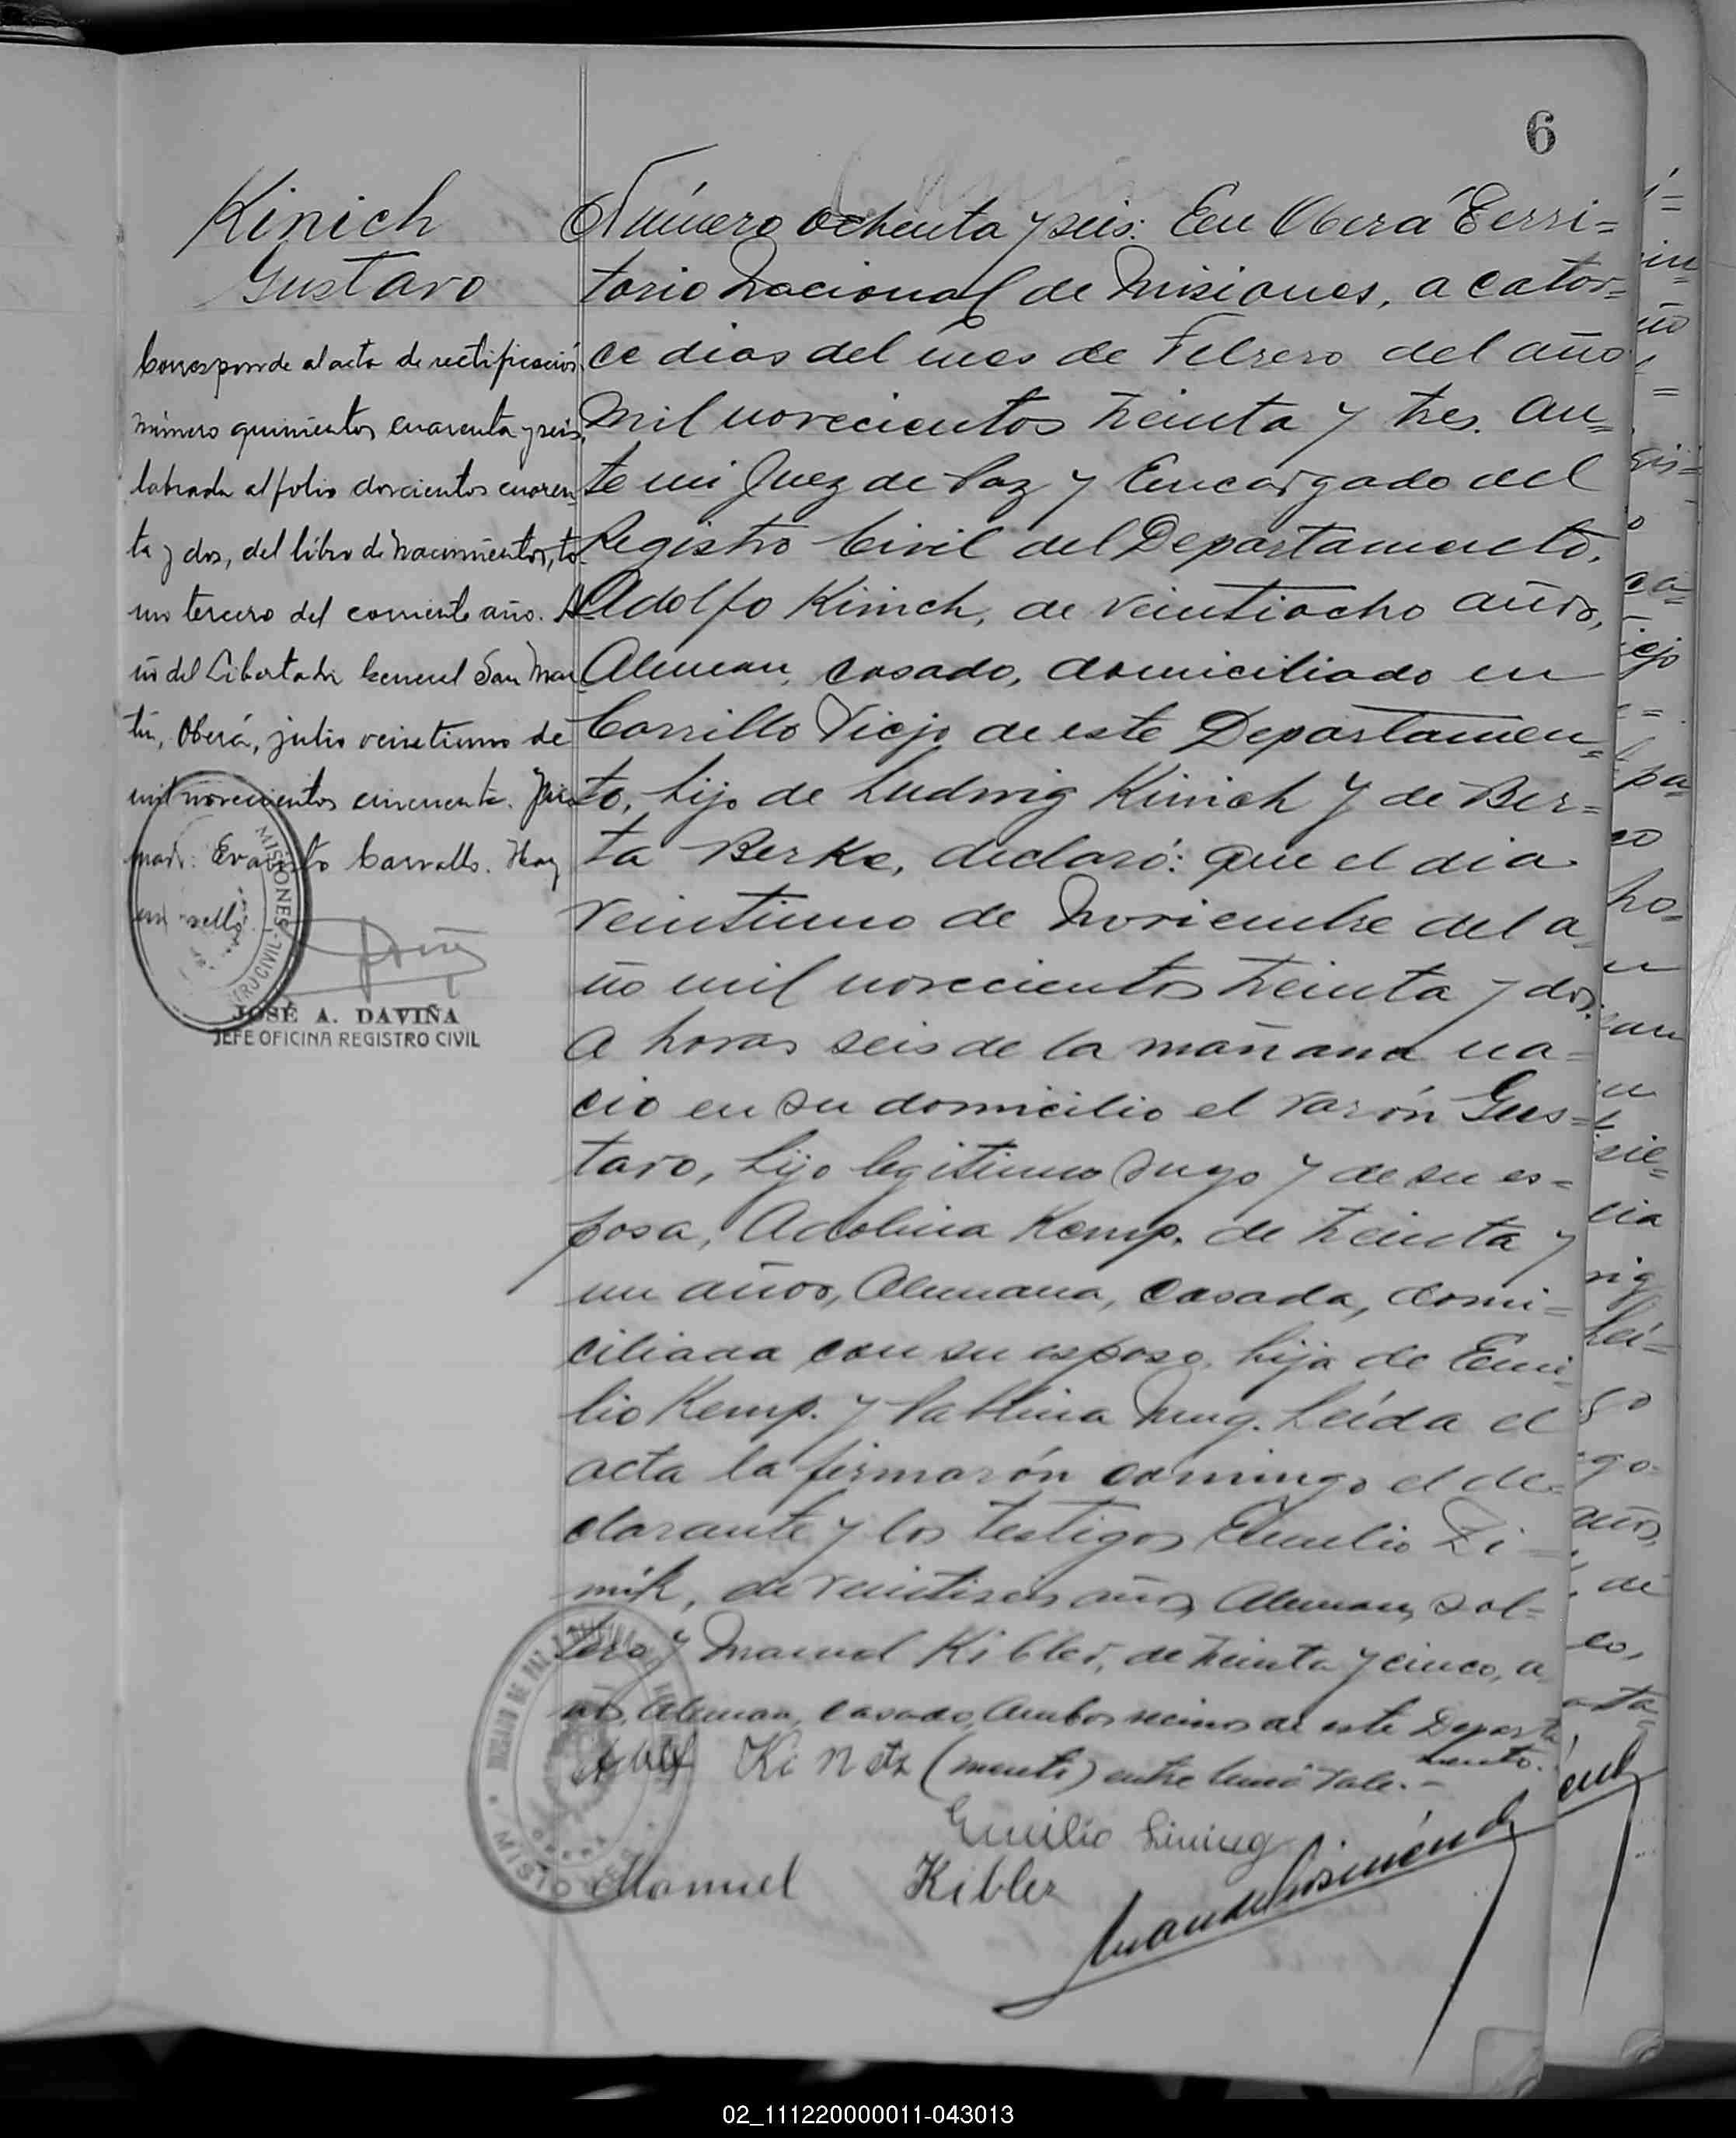 6
Kinich
Gustavo
Corresponde al acta de rectificación
número quinientos cuarenta y seis,
labrada al folio doscientos cuaren
ta y dos, del libro de Nacimientos, to-
mo tercero del corriente año. A
ño del Libertador General San Mar
tín, Oberá, julio veintiuno de
mil novecientos cincuenta. Fir
mado: Evaristo Carvallo. Hay
un sello.
MISIONES
CIVIL
JOSÉ A. DAVIÑA
JEFE OFICINA REGISTRO CIVIL
Número ochenta y seis: En Oberá Terri=
torio Nacional de Misiones, a cator=
ce dias del mes de Febrero del año
mil novecientos treinta y tres. an=
te mi Juez de Paz y Encargado del
Registro Civil del Departamento,
Adolfo Kinich, de veintiocho años,
Aleman, casado, domiciliado en
Cerrillo Viejo de este Departamen=
to, hijo de Ludwig Kinich y de Ber=
ta Berke, declaró: que el dia
veintiuno de Noviembre del a=
ño mil novecientos treinta y dos.
a horas seis de la mañana na=
ció en su domicilio el varón Gus=
tavo, hijo legitimo suyo y de su es=
posa, Adolina Kemp. de treinta y
un años, Alemana, casada, domi=
ciliada con su esposo, hija de Emi=
lio Kemp. y Pablina Mug. Leída el
acta la firmarón conmigo el de=
clarante y los testigos Emilio Li=
mik, de veintiseis años Aleman, sol=
tero y Manuel Kibler, de treinta y cinco, a=
ños, Aleman, casado, Ambos vecinos de este Departa
mento.
Adolf Kinetz (mento) entre linea Vale.-
Emilio Lining
Manuel Kibler
JUZGADO DE PAZ
OBERA
MISIONES
02_111220000011-043013